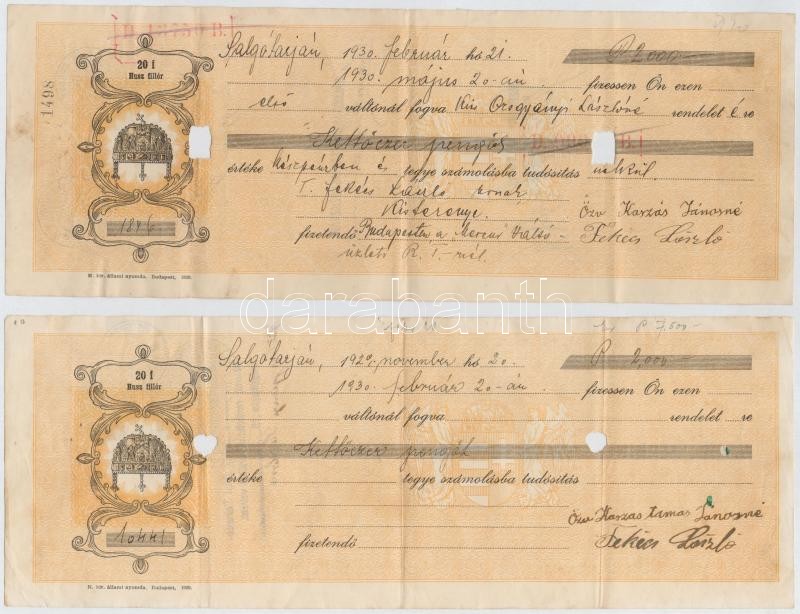 20 f
Husz fillér
1498
Salgótarján, 1930. február hó 21. P 2,000
1930. május 20-án fizessen Ön ezen
első váltónál fogva Kis Orogványi Lászlóné rendelet é re
Kettőezer pengőt
értéke készpénzben és tegye számolásba tudósítás nélkül.
T. Fekécs László urnak
Kisterenye.
fizetendő Budapesten, a Mercur Váltó-
üzleti R. T.-nál.
Özv Karzás Jánosné
Fekécs László
1846
M. kir. állami nyomda. Budapest,
darabanth
20 f
Husz fillér
Salgótarján, 1929. november hó 20. P 2,000
P 7,500
1930. február 20-án fizessen Ön ezen
váltónál fogva rendelet re
Kettőezer pengőt
értéke tegye számolásba tudósítás
Özv Karzás Tamás Jánosné
fizetendő Fekécs László
10441
M. kir. állami nyomda. Budapest,